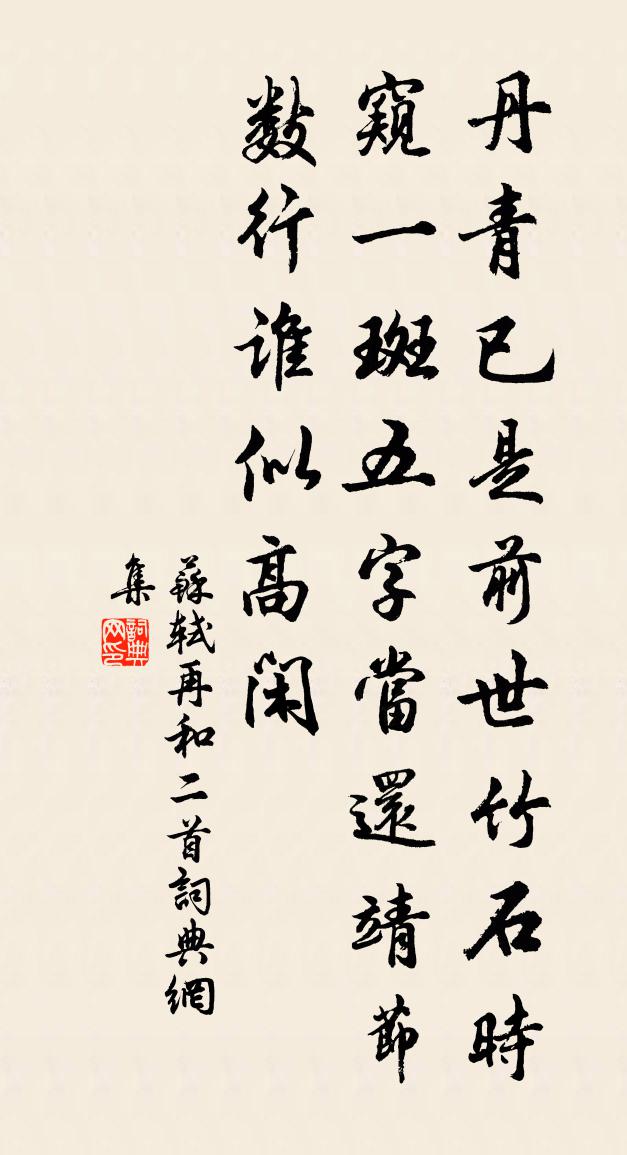 丹青已是前世竹石時
窺一斑五字當還靖節
数行誰似高閑
蘇軾再和二首詞典網
集
詞典
网印